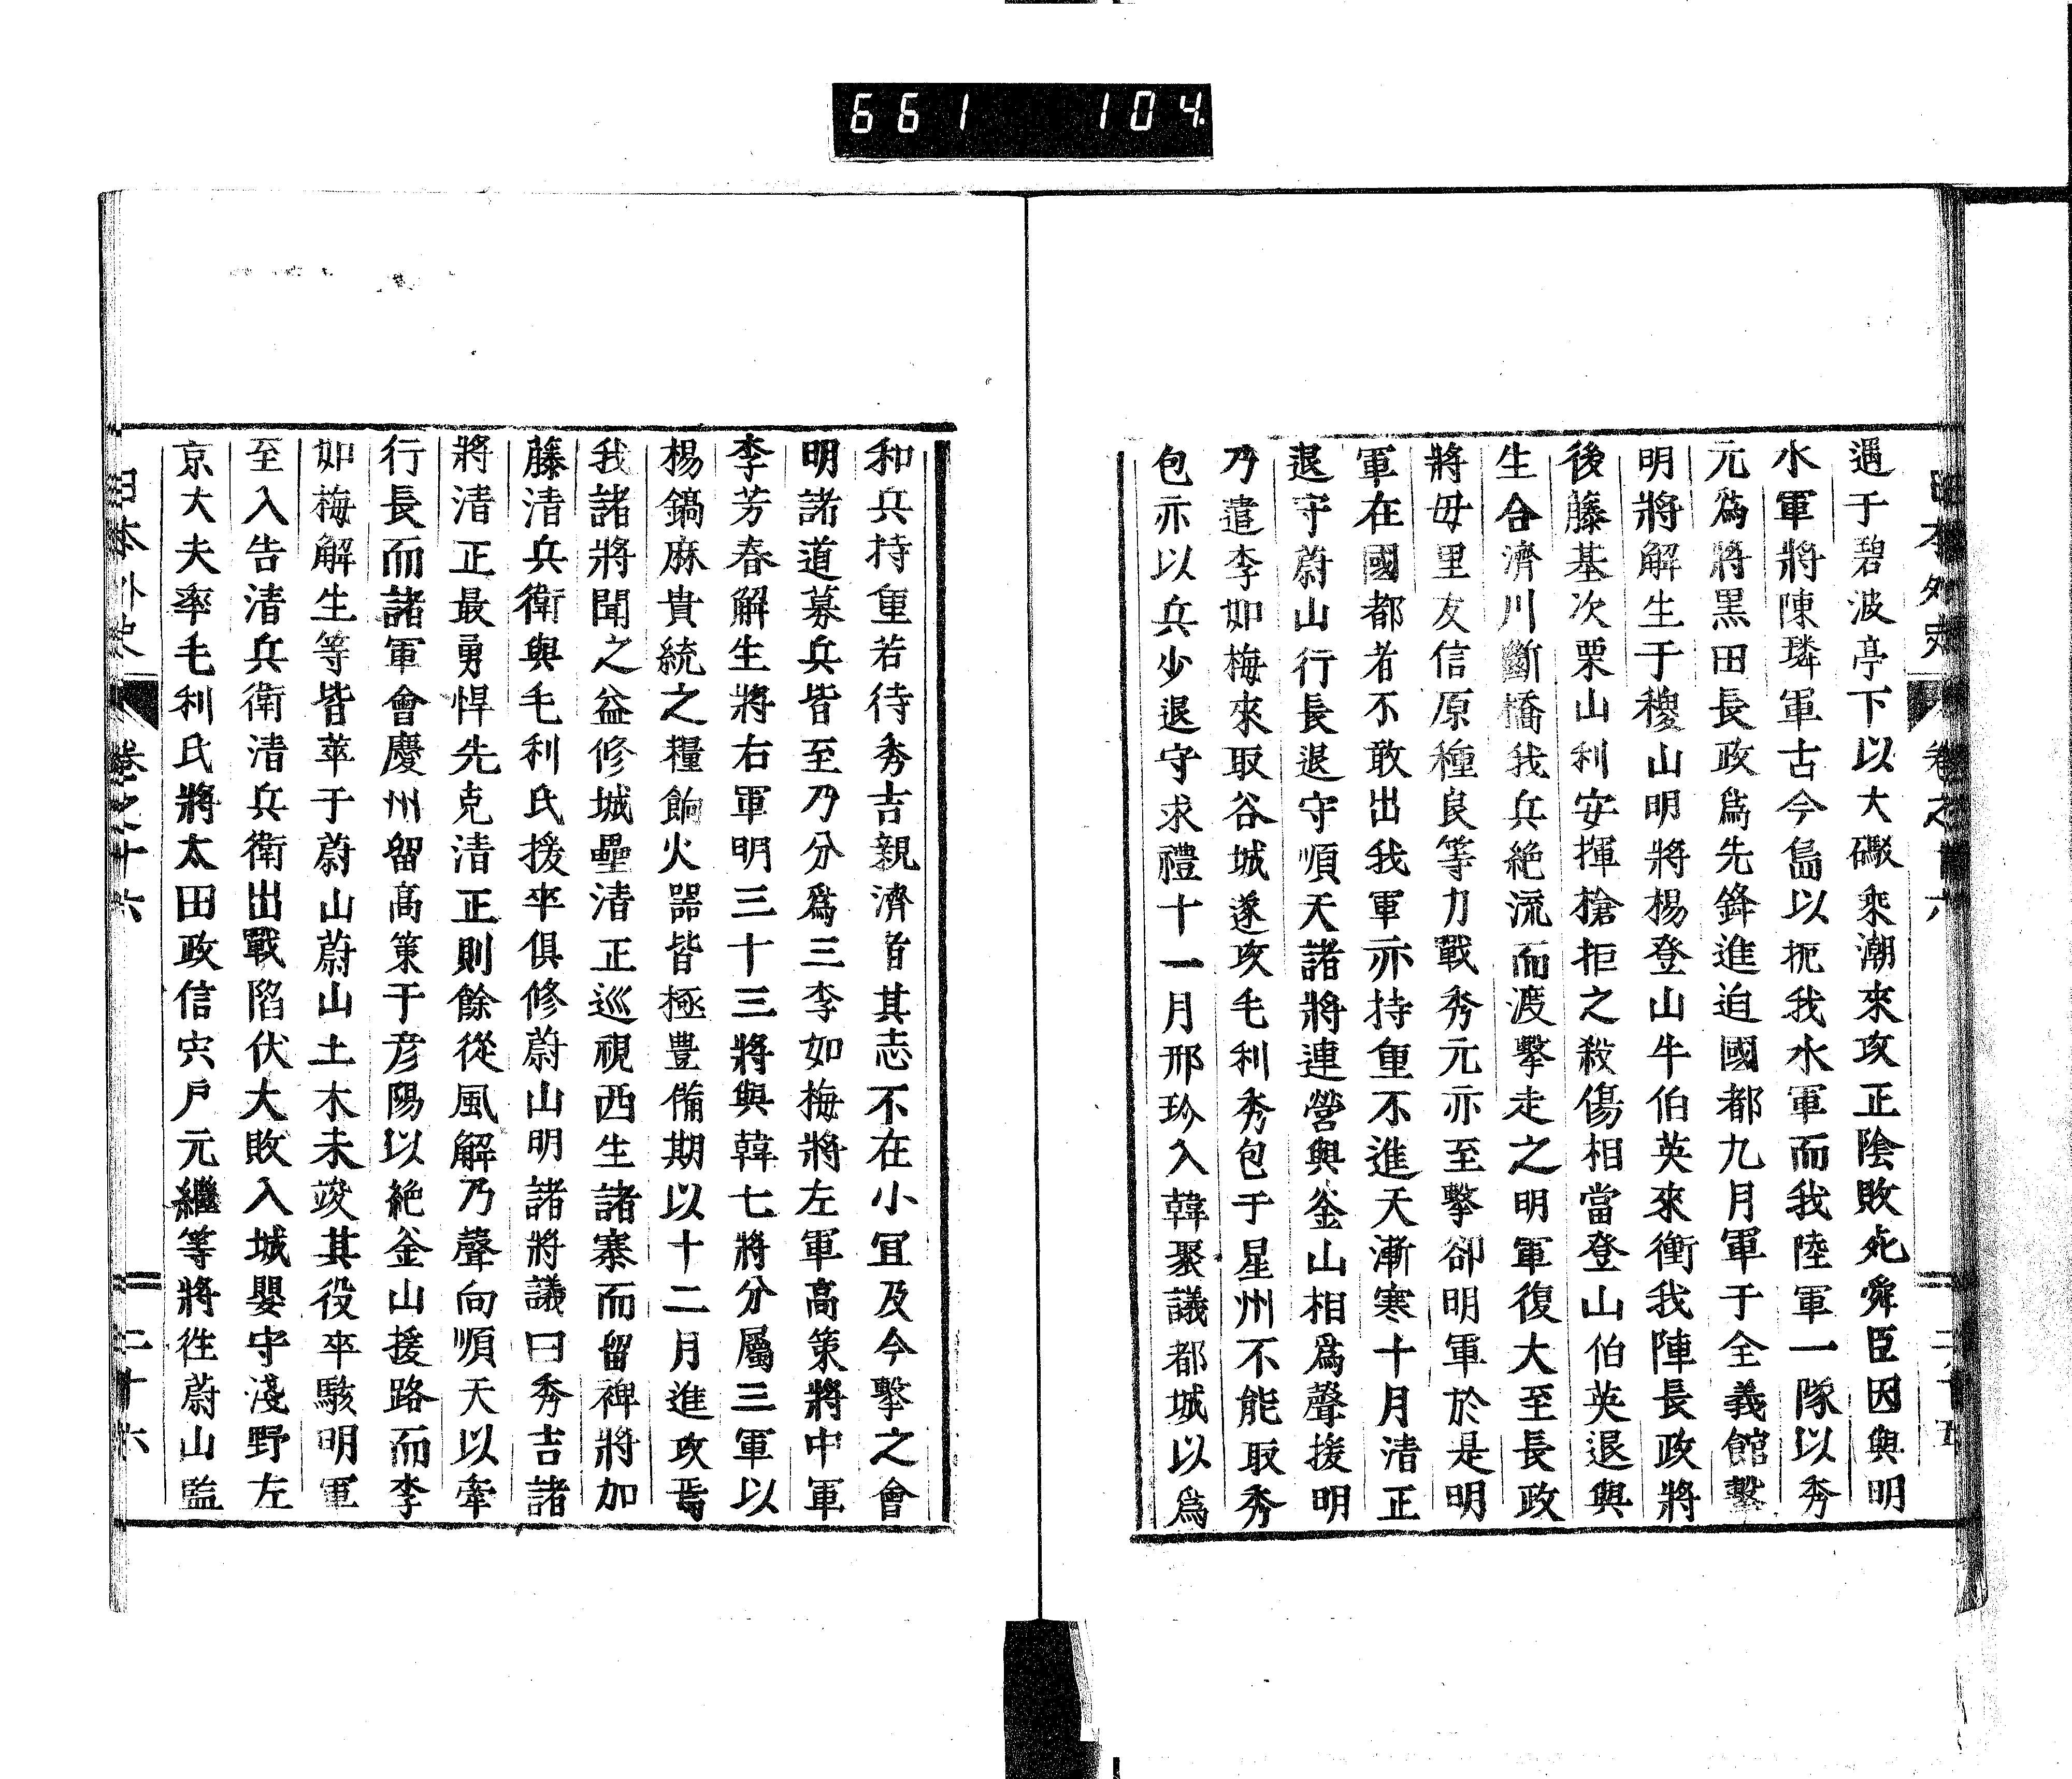 661 104
日本外史 卷之十六 二十五
遇于碧波亭下以大礮乘潮來攻正陰敗死舜臣因與明
水軍將陳璘軍古今島以扼我水軍而我陸軍一隊以秀
元爲將黑田長政爲先鋒進迫國都九月軍于全義館擊
明將解生于稷山明將楊登山牛伯英來衝我陣長政將
後藤基次栗山利安揮槍拒之殺傷相當登山伯英退與
生合濟川斷橋我兵絶流而渡擊走之明軍復大至長政
將毋里友信原種良等力戰秀元亦至擊卻明軍於是明
軍在國都者不敢出我軍亦持重不進天漸寒十月清正
退守蔚山行長退守順天諸將連營與釜山相爲聲援明
乃遣李如梅來取谷城遂攻毛利秀包于星州不能取秀
包亦以兵少退守求禮十一月邢玠入韓聚議都城以爲
和兵持重若待秀吉親濟者其志不在小宜及今擊之會
明諸道募兵皆至乃分爲三李如梅將左軍高策將中軍
李芳春解生將右軍明三十三將與韓七將分屬三軍以
楊鎬麻貴統之糧餉火器皆極豊備期以十二月進攻焉
我諸將聞之益修城壘清正巡視西生諸寨而留裨將加
藤清兵衛與毛利氏援卒俱修蔚山明諸將議曰秀吉諸
將清正最勇悍先克清正則餘從風解乃聲向順天以牽
行長而諸軍會慶州留高策于彦陽以絶釜山援路而李
如梅解生等皆萃于蔚山蔚山土木未竣其役卒駭明軍
至入告清兵衛清兵衛出戰陷伏大敗入城嬰守淺野左
京大夫率毛利氏將太田政信宍戶元繼等將徃蔚山監
日本外史 卷之十六 二十六